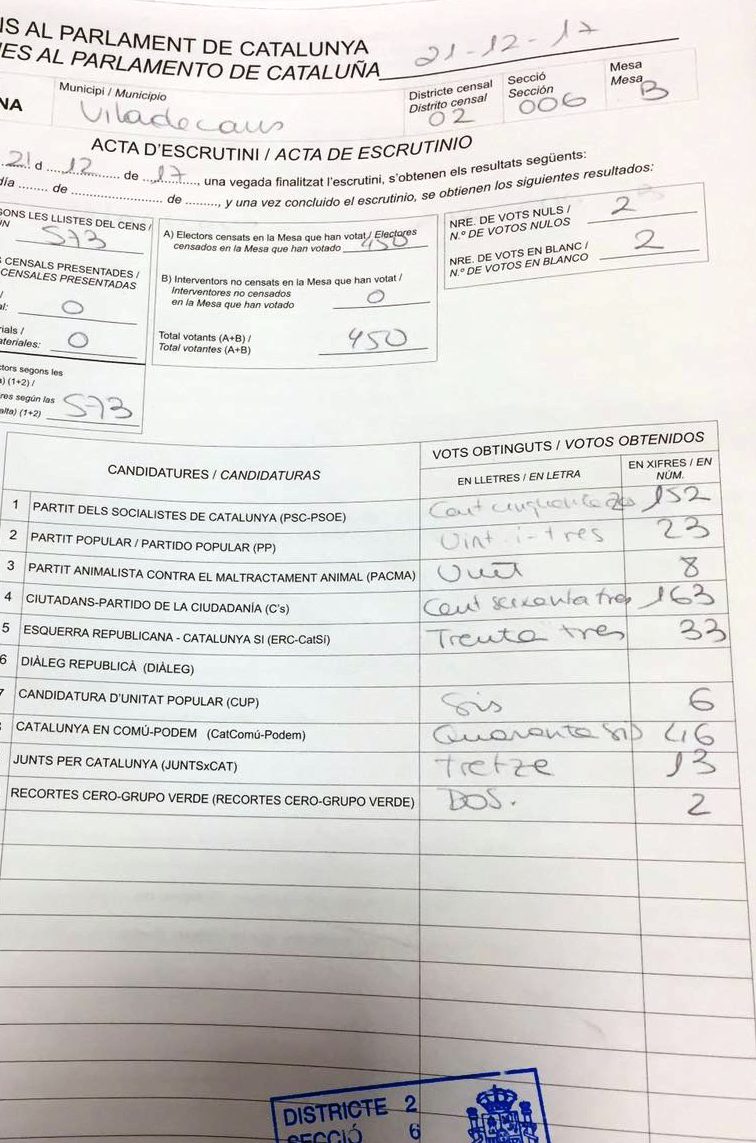 NS AL PARLAMENT DE CATALUNYA
NES AL PARLAMENTO DE CATALUÑA 21-12-17
NA
Municipi / Municipio
Viladecans
Districte censal
Distrito censal
02
Secció
Sección
006
Mesa
Mesa
B
ACTA D'ESCRUTINI / ACTA DE ESCRUTINIO
21 d ..... 12 ..... de ..17....., una vegada finalitzat l'escrutini, s'obtenen els resultats següents:
día ........ de ........................ de ........, y una vez concluido el escrutinio, se obtienen los siguientes resultados:
GONS LES LLISTES DEL CENS /
573
CENSALS PRESENTADES /
CENSALES PRESENTADAS
al: 0
rials /
ateriales: 0
ctors segons les
a) (1+2) /
res según las
alta) (1+2) 573
A) Electors censats en la Mesa que han votat / Electores
censados en la Mesa que han votado 450
B) Interventors no censats en la Mesa que han votat /
Interventores no censados
en la Mesa que han votado 0
Total votants (A+B) /
Total votantes (A+B) 450
NRE. DE VOTS NULS /
N.º DE VOTOS NULOS 2
NRE. DE VOTS EN BLANC /
N.º DE VOTOS EN BLANCO 2
CANDIDATURES / CANDIDATURAS
VOTS OBTINGUTS / VOTOS OBTENIDOS
EN LLETRES / EN LETRA
EN XIFRES / EN
NÚM.
1 PARTIT DELS SOCIALISTES DE CATALUNYA (PSC-PSOE) Cent cinquanta dos 152
2 PARTIT POPULAR / PARTIDO POPULAR (PP) Vint-i-tres 23
3 PARTIT ANIMALISTA CONTRA EL MALTRACTAMENT ANIMAL (PACMA) Vuit 8
4 CIUTADANS-PARTIDO DE LA CIUDADANÍA (C's) Cent seixanta tres 163
5 ESQUERRA REPUBLICANA - CATALUNYA SI (ERC-CatSí) Trenta tres 33
6 DIÀLEG REPUBLICÀ (DIÀLEG)
7 CANDIDATURA D'UNITAT POPULAR (CUP) Sis 6
CATALUNYA EN COMÚ-PODEM (CatComú-Podem) Quaranta sis 46
JUNTS PER CATALUNYA (JUNTSxCAT) tretze 13
RECORTES CERO-GRUPO VERDE (RECORTES CERO-GRUPO VERDE) DOS. 2
DISTRICTE 2
SECCIÓ 6